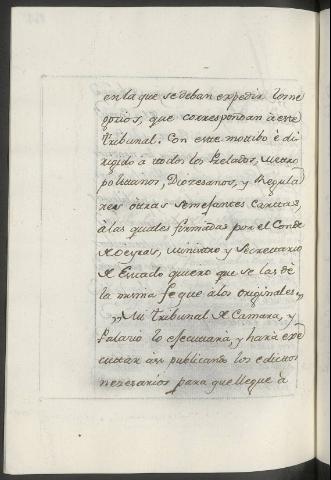 en la que se deban expedir los ne
gocios, que correspondan à este
Tribunal. Con este motibo è di
rigido à todos los Prelados, Metro
politanos, Diozesanos, y Regula
res otras semejantes Cartas,
à las quales firmadas por el Conde
de Oeyras, Ministro y Secretario
de Estado quiero que se las dè
la misma fe que à los originales.,,
,, Mi Tribunal de Camara, y
Palacio lo ejecutarà, y harà exe
cuttar assi publicando los edictos
nezesarios para que llegue à